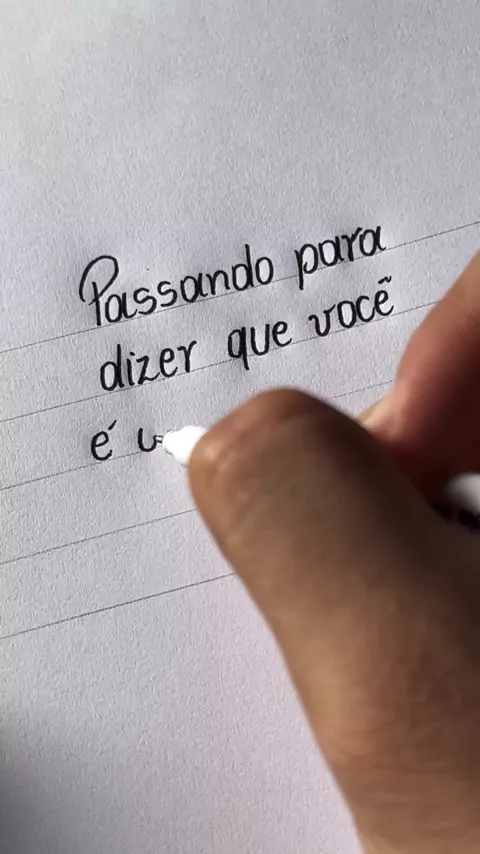 Passando para
dizer que você
é u